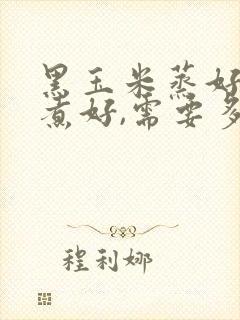 黑玉米蒸好
煮好,需要多
程利娜